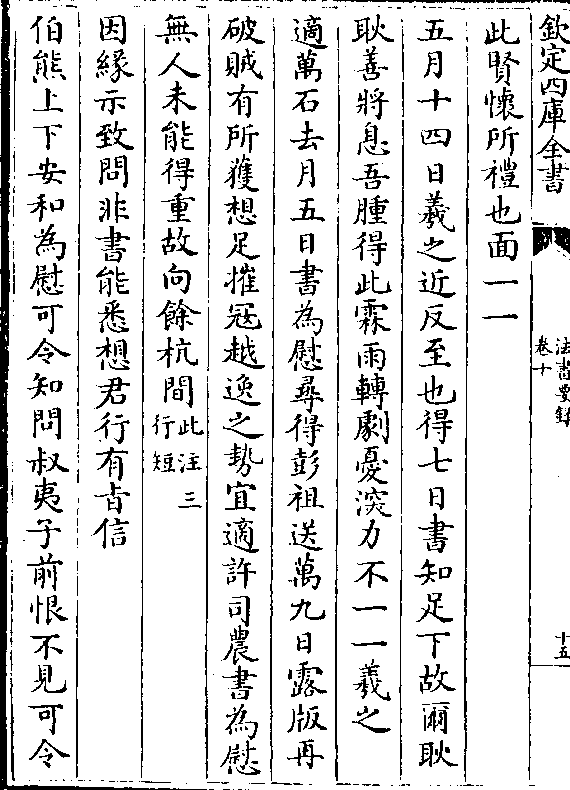 欽定四庫全書
法書要錄
卷十
十五
此賢懷所禮也面一一
五月十四日羲之近反至也得七日書知足下故爾耿
耿善將息吾腫得此霖雨轉劇憂深力不一一羲之
適萬石去月五日書為慰尋得彭祖送萬九日露版再
破賊有所獲想足摧寇越逸之勢宜適許司農書為慰
無人未能得重故向餘杭間此注三行短
因緣示致問非書能悉想君行有旨信
伯熊上下安和為慰可令知問叔夷子前恨不見可令